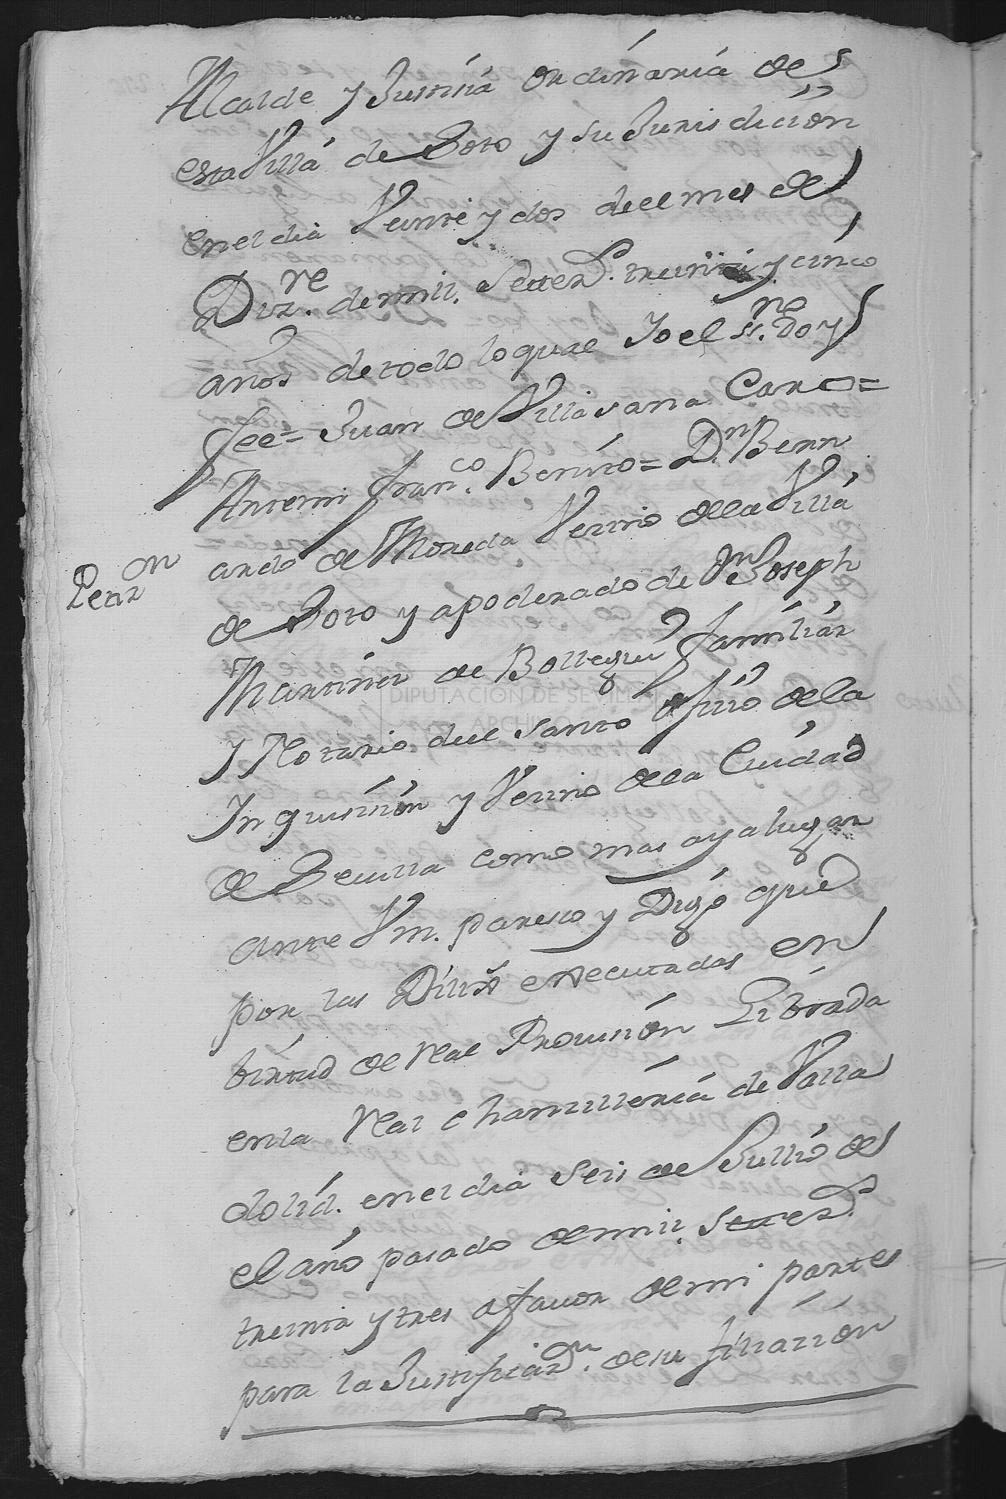 Alcalde y Justizia ordinaria de
esta Villa de Soto y su Jurisdicion
en el dia Veinte y dos de el mes de
Dizre. de mill. Settezs. treinta y cinco
años de todo lo qual Yo el ssno. doy
fee = Juan de Villasana Caro =
Antemi Franco. Benito = Dn. Bern
ardo de Moreda Vezino de la Villa
Petizon
de Soto y apoderado de Dn Joseph
Martinez de Bollegui familiar
y Notario de el santo ofizio de la
Inquisizion y Vezino de la Ciudad
DIPUTACIÓN DE SEVILLA
ARCHIVO
de Sevilla como mas aya lugar
ante Vm. paresco y Digo que
por las Dilizs executadas en
birtud de Real Provision Librada
en la Real Chanzilleria de Valla
dolid. en el dia seis de Jullio de
el año pasado de mill. settezs.
treinta y tres a favor de mi parte
para la Justificazn. de su filiazion